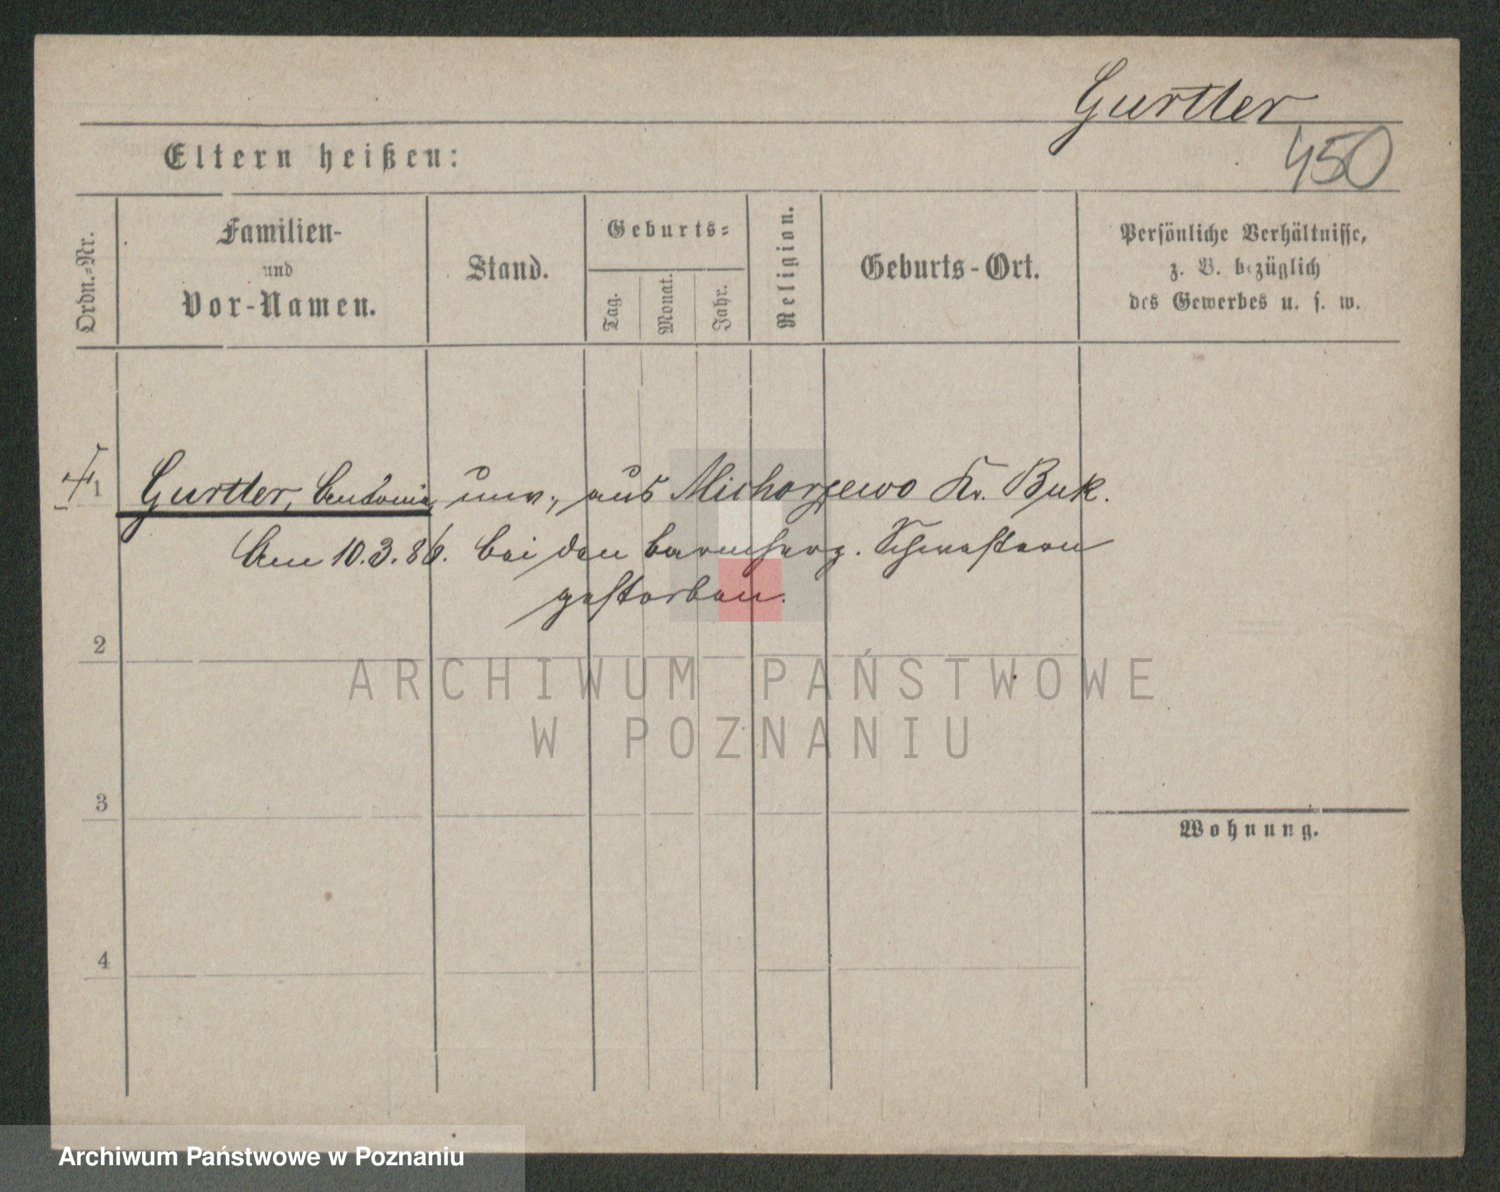 Gurtler
450
Eltern heißen:
Ordn.-Nr.
Familien-
und
Vor-Namen.
Stand.
Geburts-
Tag.
Monat.
Jahr.
Religion.
Geburts-Ort.
Persönliche Verhältnisse,
z. B. bezüglich
des Gewerbes u. s. w.
1
Gurtler, Antonie, unv., aus Michorzewo Kr. Buk.
Am 10.3.86. bei den barmherz. Schwestern
gestorben.
2
ARCHIWUM PAŃSTWOWE
W POZNANIU
3
Wohnung.
4
Archiwum Państwowe w Poznaniu